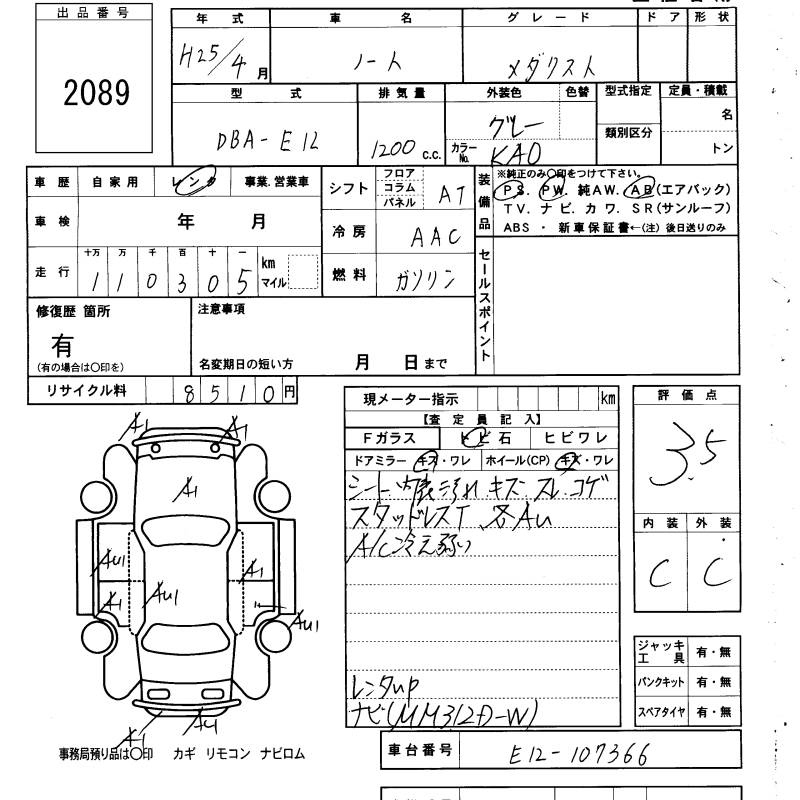 出品番号
2089
年式 車名 グレード ドア 形状
H25/4月 ノート メダリスト
型式 排気量 外装色 色替 型式指定 定員・積載
DBA-E12 1200 c.c. グレー 名
カラーNo. KAD 類別区分 トン
車歴 自家用 レンタ 事業.営業車
車検 年 月
走行 十万 万 千 百 十 一 km マイル
1 1 0 3 0 5
シフト フロア コラム パネル AT
冷房 AAC
燃料 ガソリン
装備品
※純正のみ〇印をつけて下さい。
PS. PW. 純AW. AB(エアバック)
TV. ナビ. カワ. SR(サンルーフ)
ABS ・ 新車保証書←(注) 後日送りのみ
セールスポイント
修復歴 箇所
有
(有の場合は〇印を)
注意事項
名変期日の短い方 月 日まで
リサイクル料 8510円
現メーター指示 km
【査定員記入】
Fガラス トビ石 ヒビワレ
ドアミラー キズ・ワレ ホイール(CP) キズ・ワレ
シート・内張汚れ キズ スレ コゲ
スタッドレスT 各Au
A/C冷え弱い
レンタup
ナビ(MM312D-W)
評価点
3.5
内装 外装
C C
ジャッキ工具 有・無
パンクキット 有・無
スペアタイヤ 有・無
A1 A1
A1
AU1 A1
A1 AU1 AU1
A1 AU1
事務局預り品は〇印 カギ リモコン ナビロム
車台番号 E12-107366